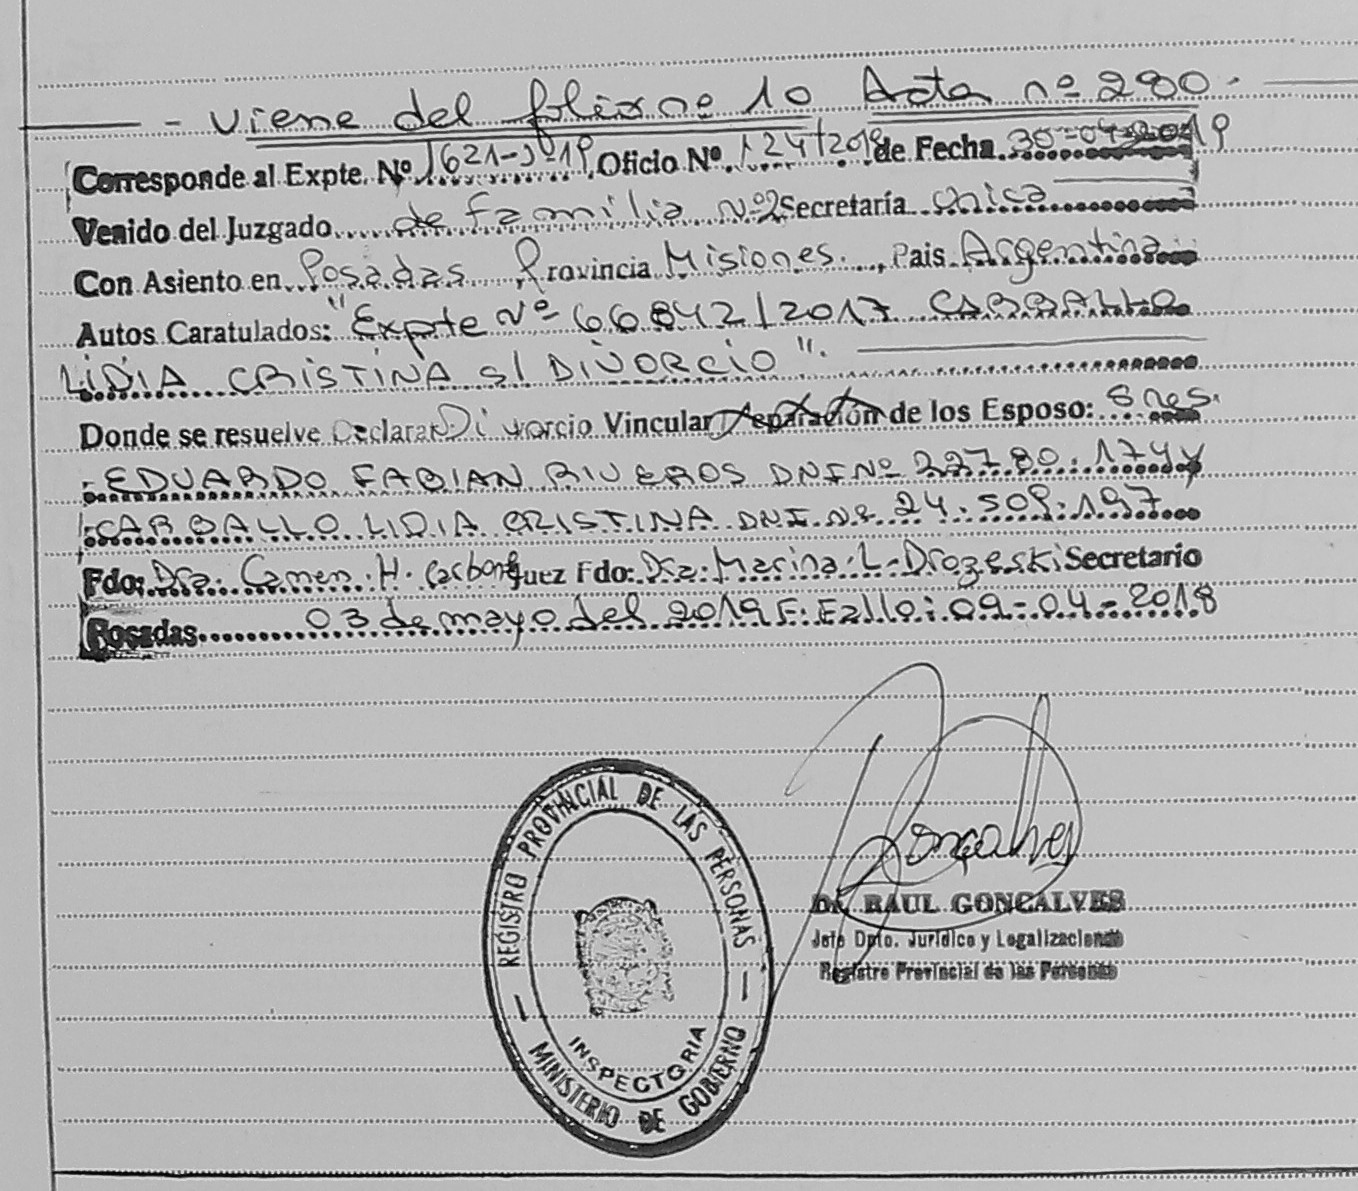 - Viene del folio nº 10 Acta nº 280.-
Corresponde al Expte. Nº 1621-J-19, Oficio Nº 124/2019 de Fecha 30-04-2019
Venido del Juzgado de Familia Nº2 Secretaría única
Con Asiento en Posadas Provincia Misiones., Pais Argentina
Autos Caratulados: "Expte Nº 66842/2017 CARBALLO
LIDIA CRISTINA s/ DIVORCIO".
Donde se resuelve Declarar Divorcio Vincular Separación de los Esposo: Sres.
EDUARDO FABIAN RIVEROS DNI Nº 22780.174 y
CARBALLO LIDIA CRISTINA DNI. Nº 24.509.197
Fdo: Dra. Carmen H. Fdo: Dra. Marina L. Drozeski Secretario
Posadas 03 de mayo del 2019 F. Fallo: 09-04-2018
Goncalves
Dr. RAUL GONCALVES
Jefe Dpto. Jurídico y Legalizaciones
Registro Provincial de las Personas
REGISTRO PROVINCIAL DE LAS PERSONAS
INSPECTORIA
MINISTERIO DE GOBIERNO